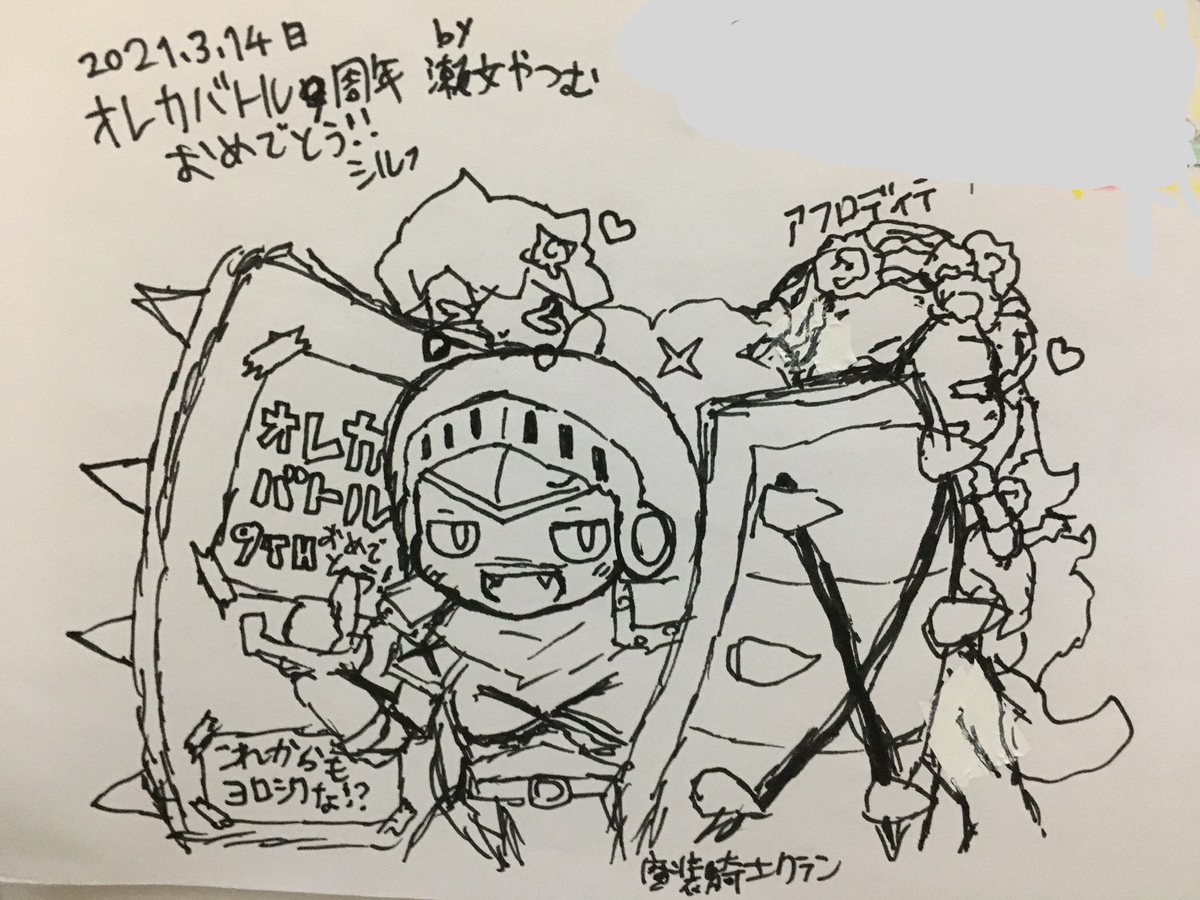 2021.3.14日
オレカバトル9周年
おめでとう!!
by
瀬女やつむ
シルフ
アフロディテ
オレカ
バトル
9TH
おめで
とう!
これからも
ヨロシクな!?
魔装騎士クラン